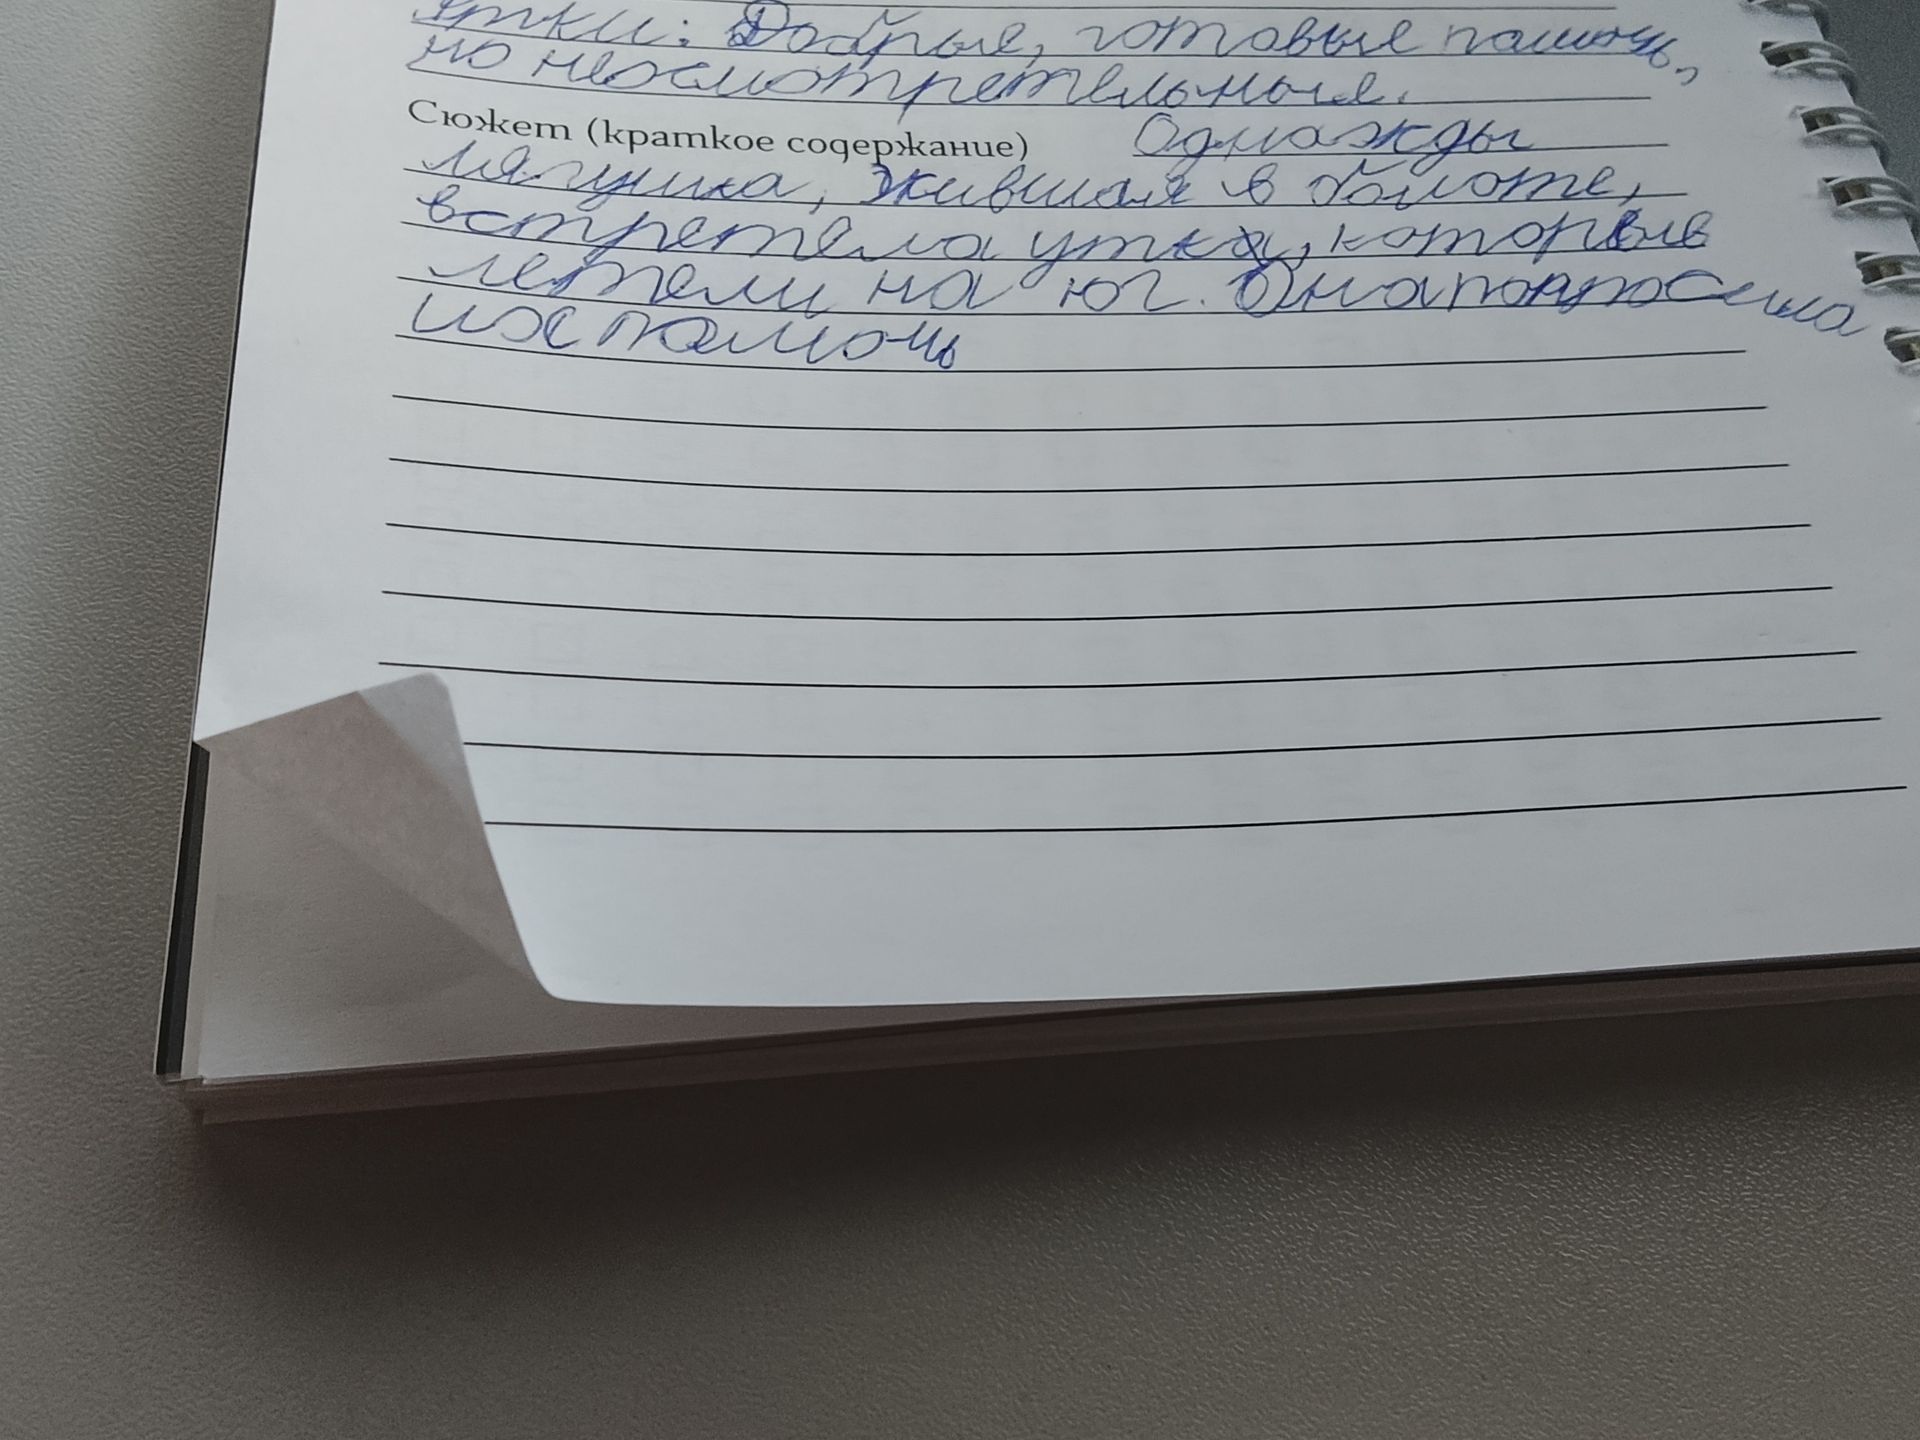 Утки: Добрые, готовые помочь,
но неосмотрительные.
Сюжет (краткое содержание) Однажды
лягушка, жившая в болоте,
встретела уток, которые
летели на юг. Она попросила
их помочь